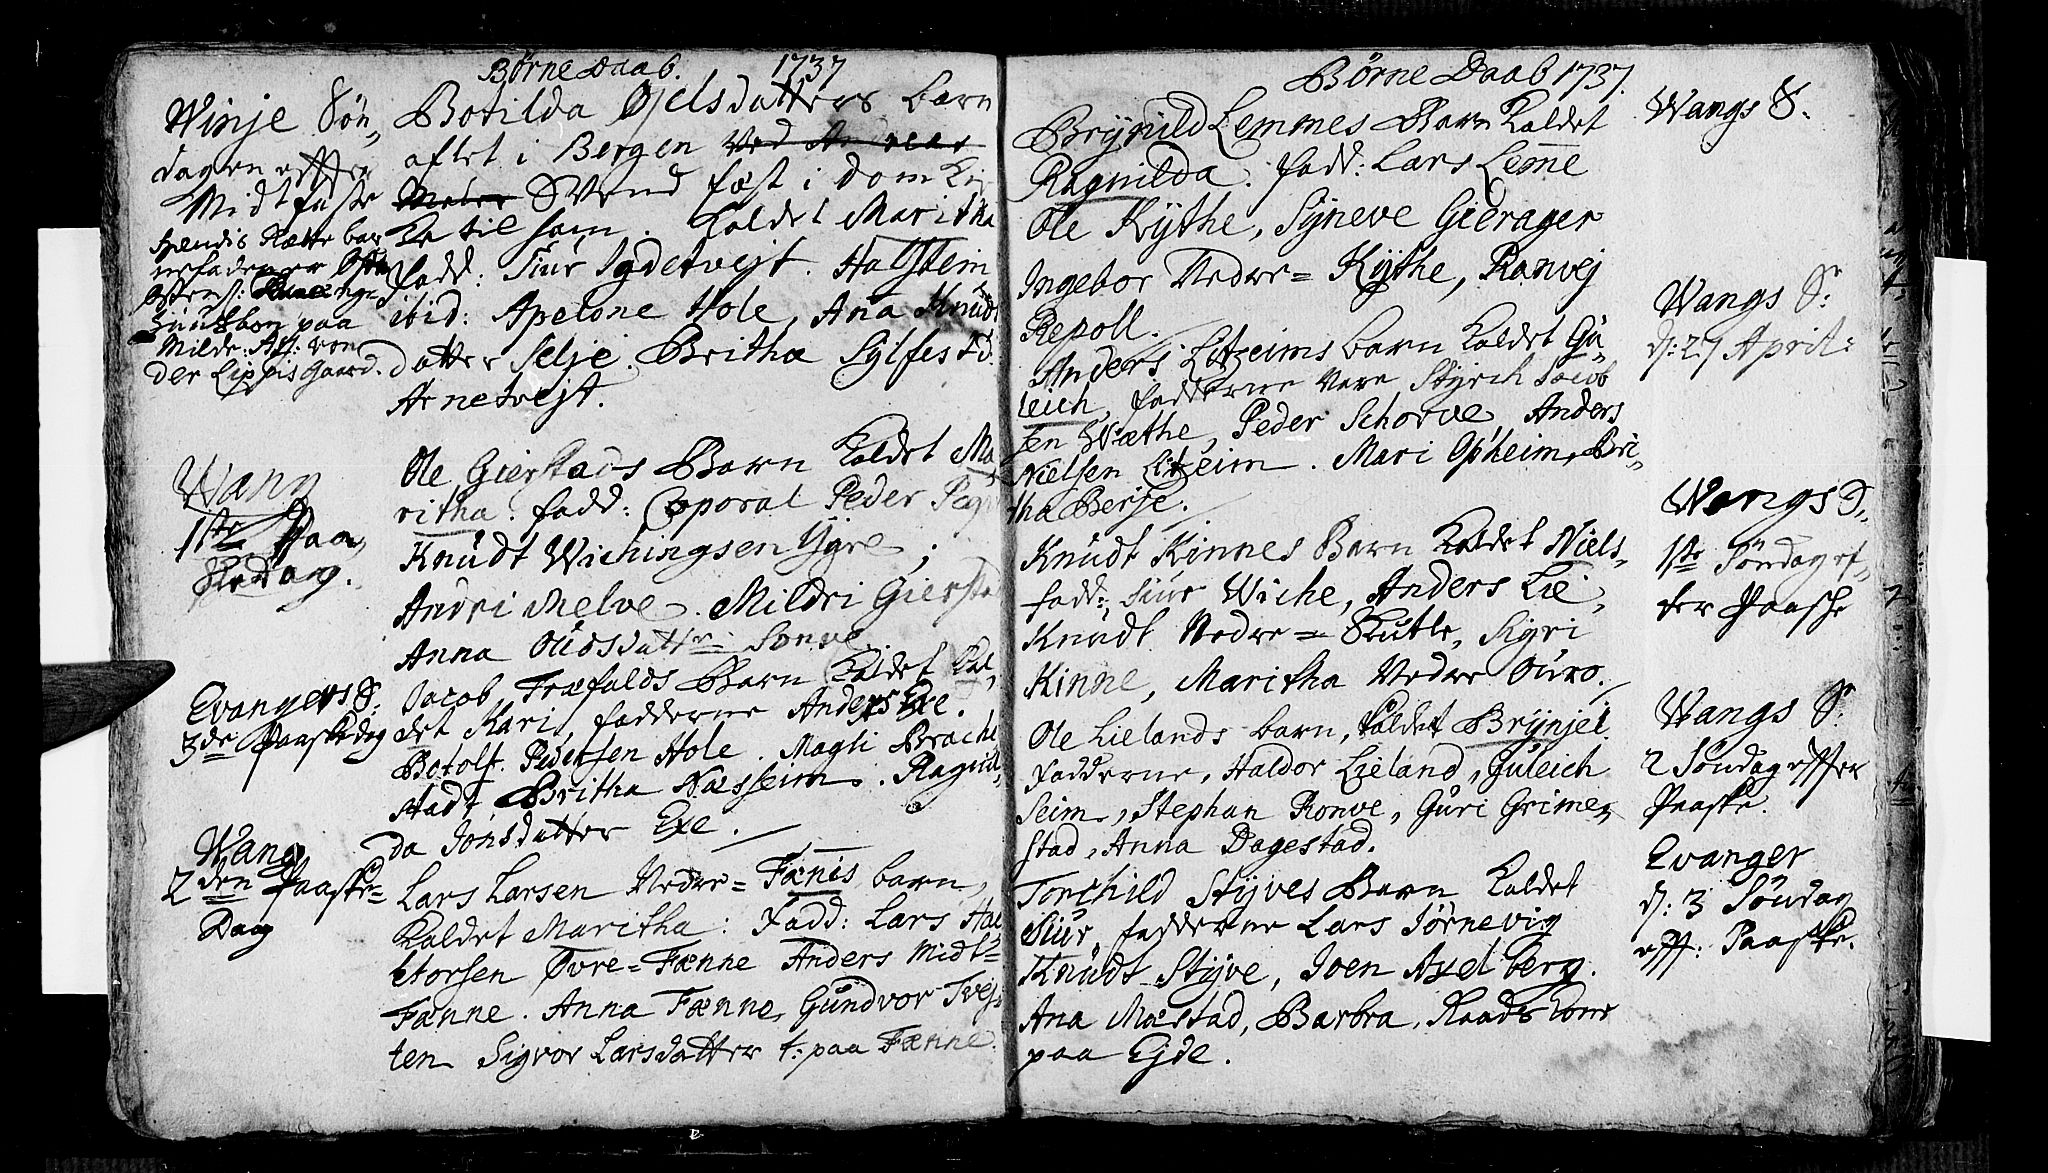 Børne Daab. 1737
Winje Søn,
dagen effter
Midtfaste
hendis Rette bar
nefader er
Huusbon paa
Milde: Ass: von
der Lippis Gaard.
Botilda Ojelsdatters barn
aflet i Bergen Ved Andreas
Meler Svend fæst i dom Kir
ke til ham. Kaldet Maritha
fadd: Siur Sydetvejt. Halstein
ibid: Apelone Hole, Ana Knudt
datter Selje. Britha Sylfest d:
Arnetvejt.
Wang
1ste Paa,
ske Dag.
Ole Gierstads Barn Kaldet Ma
ritha. fadd: Coporal Peder
Knudt Wichingsen Ygre,
Andri Melve. Mildri Gierstad
Anna Oudsdatter Sonve.
Evangers S:
3de Paaskedag
Jacob Træfalds Barn Kaldet Kal,
det Kari, fadderne Anders Exe.
Botolf Pedersen Hole. Magli Brache
stad, Britha Næsseim. Ragnil,
da Jonsdatter Exe.
Wang
2den Paaske=
Dag
Lars Larsen Nedre=Fænis barn,
Kaldet Maritha: Fadd: Lars Hal
storsen Øvre=Fænne Anders Midt=
Fænne. Anna Fænne, Gundvor Tvej,
ten Sigvor Larsdatter t: paa Fænne.
Børne Daab 1737.
Brÿnild Lemmes Barn Kaldet
Ragnilda. fadd: Lars Leme
Ole Kÿthe, Sÿneve Gierager
Ingebor Nedre=Kÿthe, Ranvej
Repoll.
Wangs S:
Anders Litzeims barn Kaldet Gu,
leich, fadderne vare Stÿrch Jacob
sen Wæthe, Peder Schorve, Anders
Nielsen Litzeim. Mari Opheim, Bri,
tha Berje.
Wangs S:
d: 27 April:
Knudt Kinnes Barn Kaldet Niels.
fadd:, Siur Wiche, Anders Lie,
Knudt Nedre=Skutle, Sigri
Kinne, Maritha Nedre Ouro.
Wangs S.
1ste Søndag ef,
ter Paasche
Ole Lielands barn, kaldet Brÿnjel.
Fadderne, Haldor Lieland, Guleich
Seim, Stephan Ronve, Guri Grime,
stad, Anna Dagestad.
Wangs S:
2 Søndag effter
Paaske.
Torchild Stÿves Barn Kaldet
Siur, fadderne Lars Jørnevig
Knudt Stÿve, Joen Axelberg.
Ana Mæstad, Barbra, Raads Kone
paa Ejde.
Evanger
d: 3 Søndag
eff: Paaske.